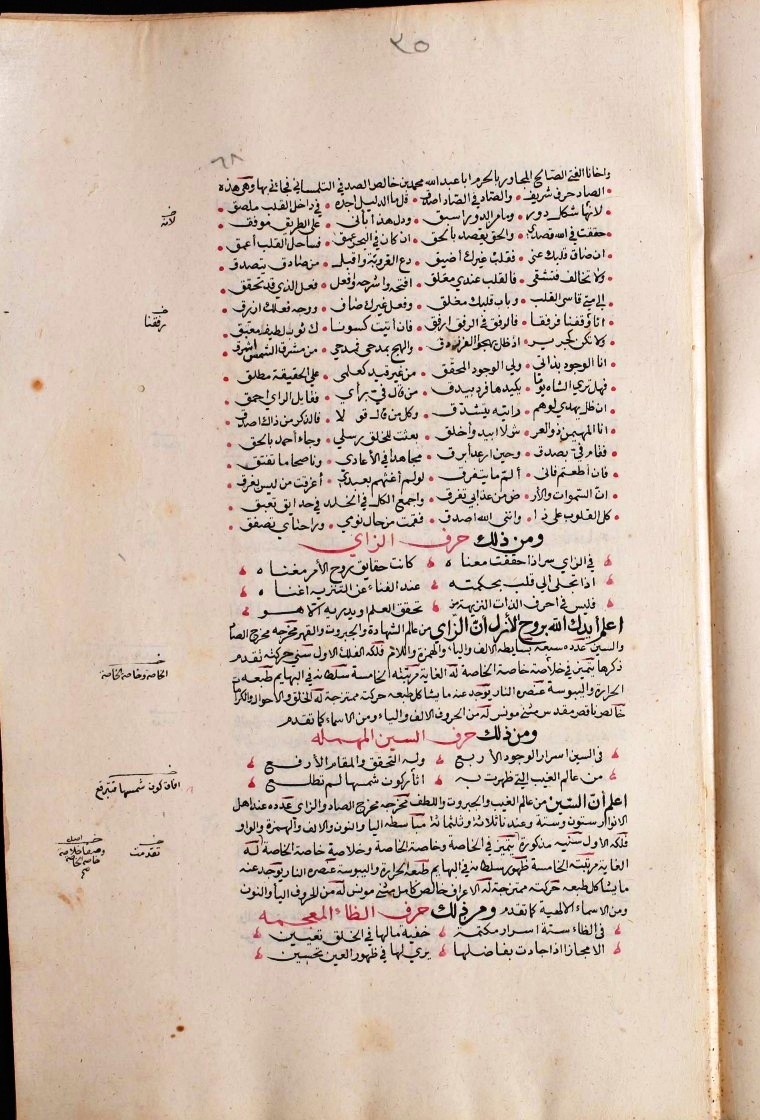 ٣٥
٦٨
واخانا الفتى الصالح المجاور بالحرم ابا عبد الله محمد بن خالص الصدفي التلمساني فجاءني بها وهي هذه
الصاد حرف شريف • والصاد في الصاد اصدق • قل ما الدليل اجده • في داخل القلب ملصق
لانها شكل دور • وما من الدور اسبق • ودل هذا بأني • على الطريق موفق
حققت في الله قصدي • والحق يقصد بالحق • ان كان في البحر عمق • فساحل القلب أعمق
ان ضاق قلبك عني • فقلب غيرك أضيق • دع القرونة واقبل • من صادق يتصدق
ولا تخالف فتشقى • فالقلب عندي معلق • افتحه واشرحه وافعل • فعل الذي قد تحقق
الى متى قاسي القلب • وباب قلبك مغلق • وفعل غيرك صاف • ووجه فعلك ازرق
انا رفقنا فرفقا • فالرفق في الرفق ارفق • فان أتيت كسونا • ك ثوب لطيف معبق
ولا تكن كجرير • اذ ظل يهجو الفرزدق • والهج بمدحي فمدحي • من مشرق الشمس اشرق
انا الوجود بذاتي • ولي الوجود المحقق • من غير قيد كعلمي • على الحقيقة مطلق
فهل ترى الشاه يوما • يكيدها فرد بيدق • من قال في برأي • فقايل الراي احمق
ان ظل يهدي لوهم • ورايه يتشدق • وكل من قال قولا • فالذكر من ذاك اصدق
انا المهيمن ذو العر • ش لا ابيد وأخلق • بعثت للخلق رسلي • وجاء أحمد بالحق
فقام في بصدق • وحين ارعد أبرق • مجاهدا في الأعادي • وناصحا ما تفتق
فان اطعتم فاني • ألمّ ما يتفرق • لو لم أغثهم بعبدي • أغرقت من ليس يغرق
انّ السموات والأر • ض من عذابي تفرق • واجمع الكل في الخلد • في حدايق تعبق
كل القلوب على ذا • وانني الله اصدق • فقمت من حال نومي • وراحتاي تصفق
ومن ذلك حرف الزاي
في الزاي سر اذا حققت معناه • كانت حقايق روح الأمر مغناه
اذا تجلى الى قلب بحكمته • عند الفناء عن التنزيه اغناه
فليس في احرف الذات النزيهة من • تحقق العلم او يدريه الا هو
اعلم أيدك الله بروح الأزل أنّ الزاي من عالم الشهادة والجبروت والقهر مخرجه مخرج الصاد
والسين عدده سبعة بسايطه الالف والياء والهمزة واللام فلكه الفلك الاول سني حركته تقدم
ذكرها يتميز في خلاصة خاصة الخاصة له الغاية مرتبته الخامسة سلطانه في البهايم طبعه
الحرارة واليبوسة عنصره النار يوجد عنه ما يشاكل طبعه حركته ممتزجة له الخلق والاحوال والكرامات
خالص ناقص مقدس مثنى مونس له من الحروف الالف والياء ومن الاسماء كما تقدم
ومن ذلك حرف السين المهمله
في السين اسرار الوجود الأربع • وله التحقق والمقام الأرفع
من عالم الغيب الذي ظهرت به • اثار كون شمسها لم تطلع
اعلم أنّ السين من عالم الغيب والجبروت واللطف مخرجه مخرج الصاد والزاي عدده عند اهل
الانوار ستون وستة وعندنا ثلاثة وثلثمائة بسايطه اليا والنون والالف والهمزة والواو
فلكه الاول سنيه مذكورة يتميز في الخاصة وخاصة الخاصة وخلاصة خاصة الخاصة له
الغاية مرتبته الخامسة ظهور سلطانه في البهايم طبعه الحرارة واليبوسة عنصره النار يوجد عنه
ما يشاكل طبعه حركته ممتزجة له الاعراف خالص كامل مثنى مونس له من الحروف اليا والنون
ومن الاسماء الالهية كما تقدم ومن ذلك حرف الظاء المعجمه
في الظاء ستة اسرار مكتمة • خفية ما لها في الخلق تعيين
الا مجازا اذا جادت بفاضلها • يرى لها في ظهور العين تحسين
لانه
رفقنا
الخاصة وخاصة الخاصة
تقدمت